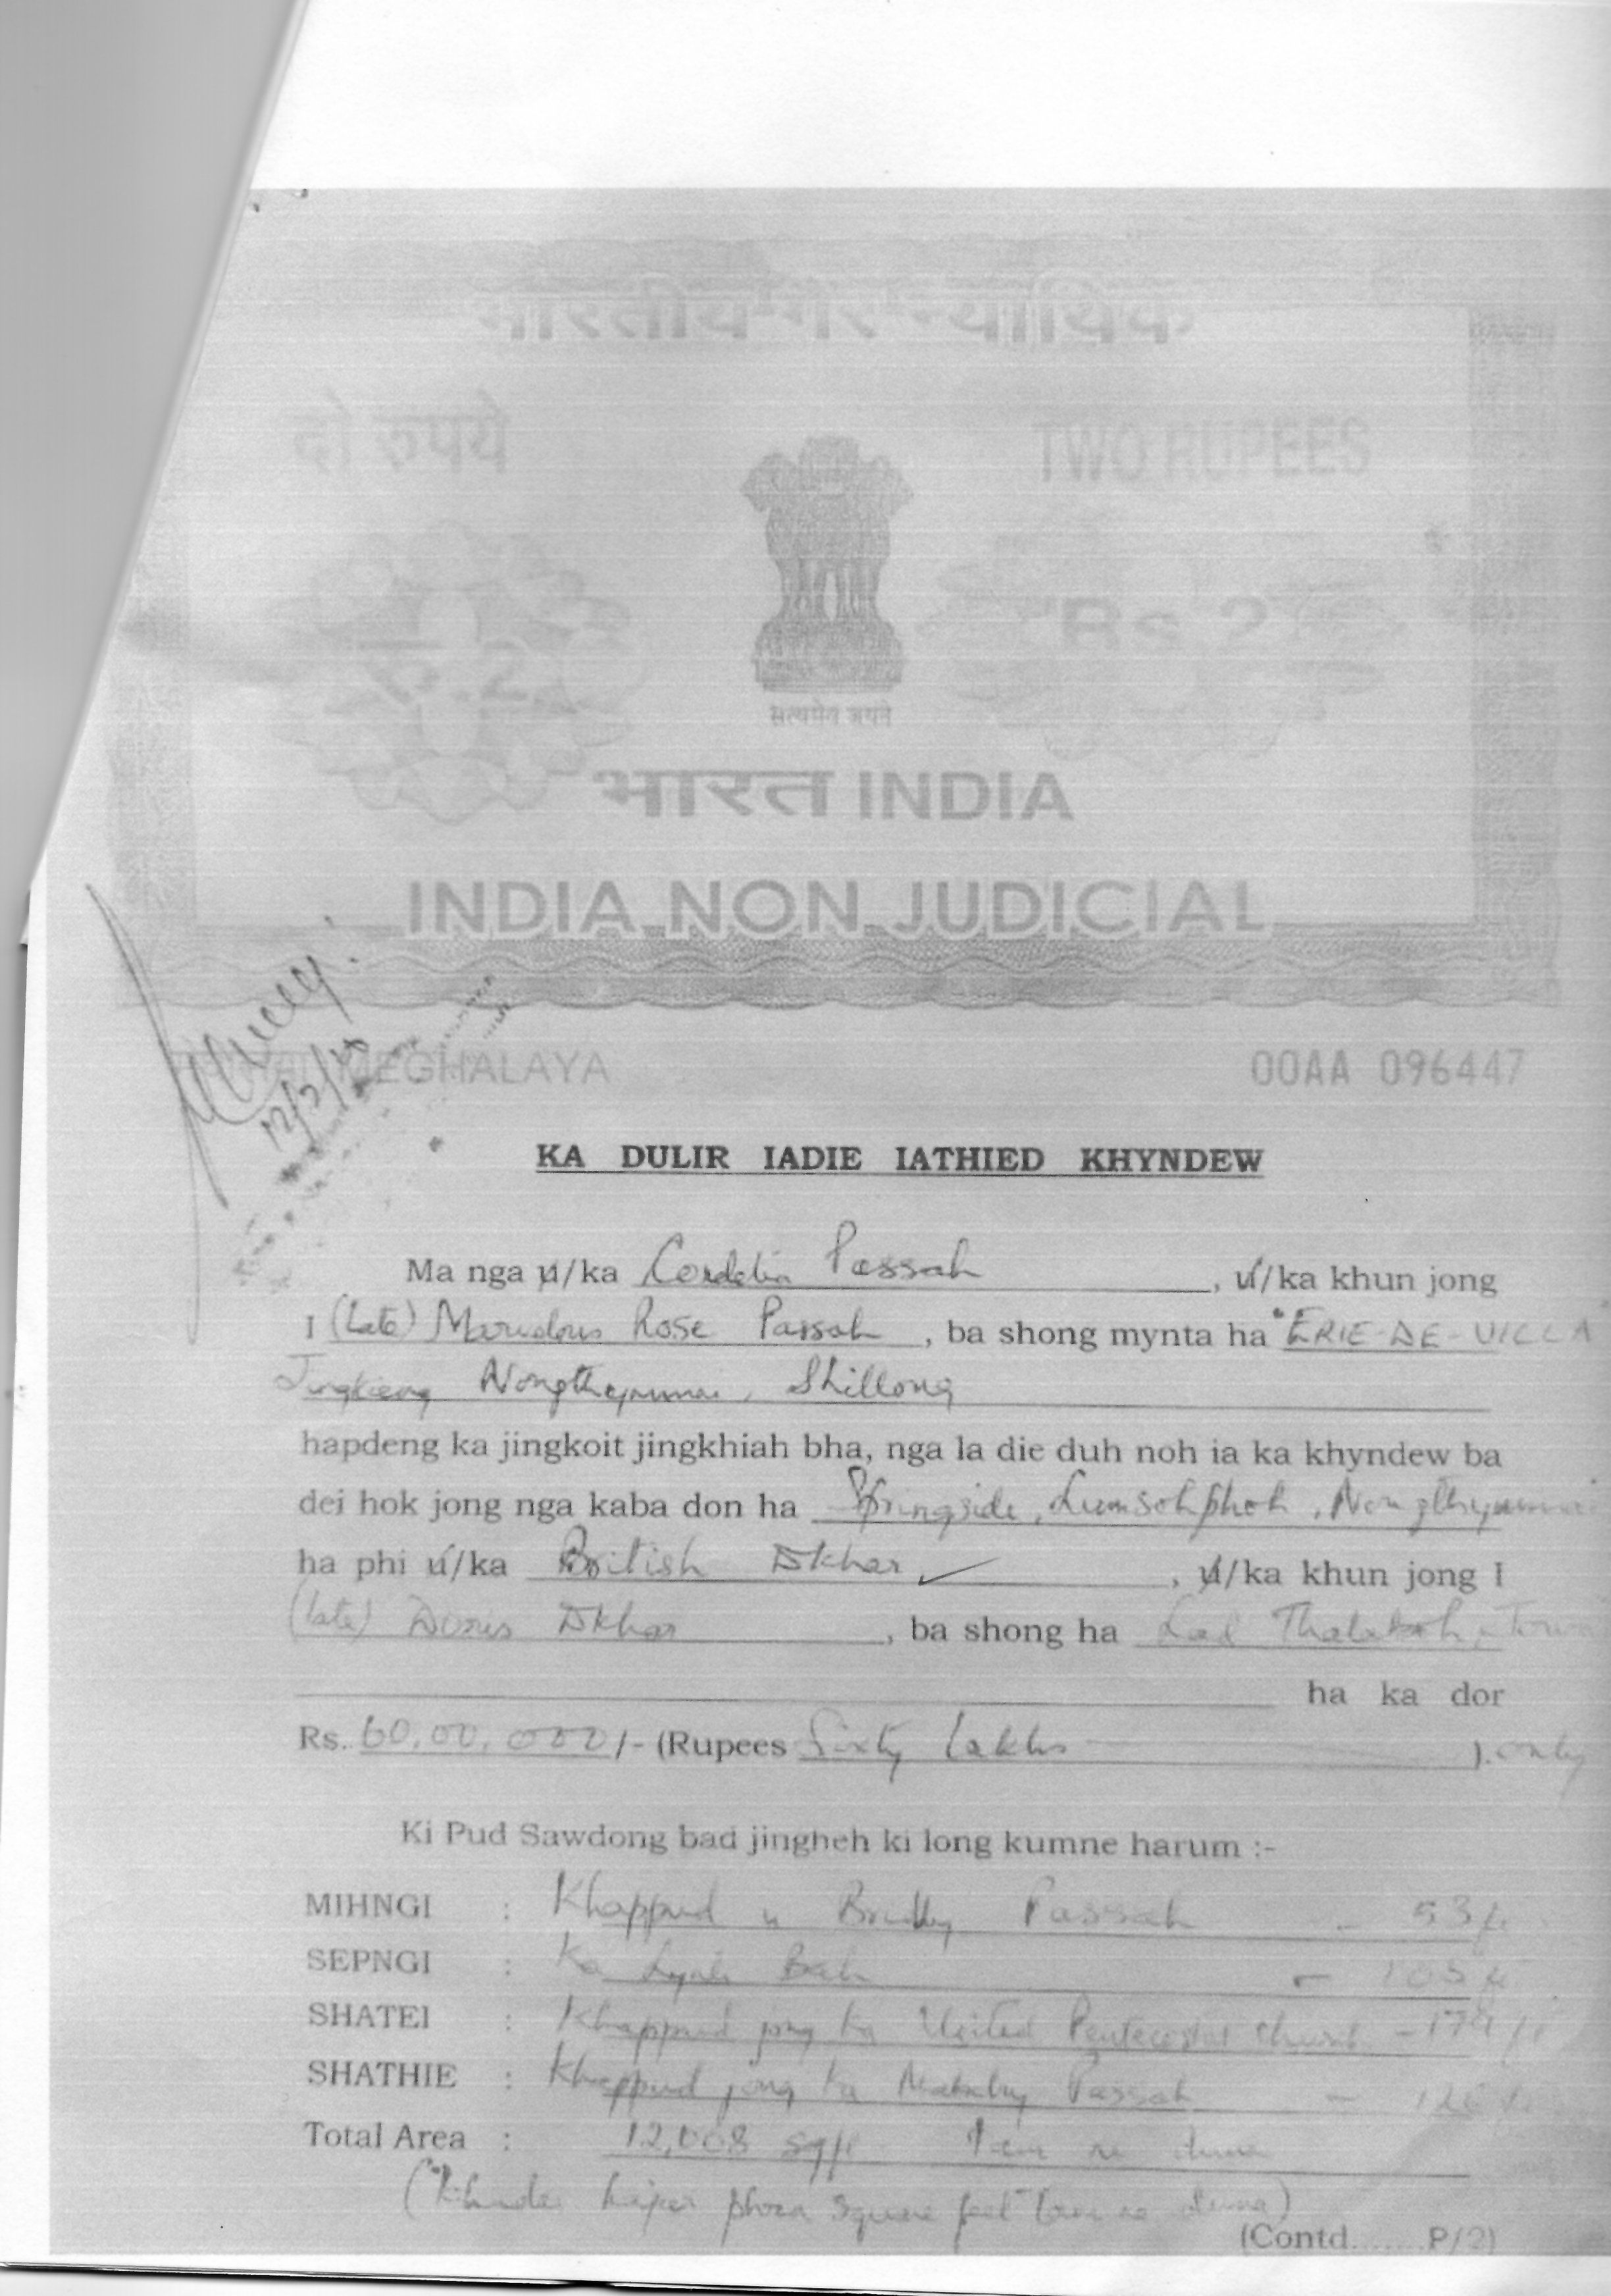 भारतीय गैर न्यायिक
दो रुपये TWO RUPEES
रु.2 Rs.2
सत्यमेव जयते
भारत INDIA
INDIA NON JUDICIAL
MEGHALAYA 00AA 096447
12/2/18
KA DULIR IADIE IATHIED KHYNDEW
Ma nga u/ka Cordelia Passah, u/ka khun jong
I (Late) Rose Passah, ba shong mynta ha "ERIE-DE-VILLA
Jingkieng Nongthymmai, Shillong
hapdeng ka jingkoit jingkhiah bha, nga la die duh noh ia ka khyndew ba
dei hok jong nga kaba don ha Springside, Lumsohphoh, Nongthymmai
ha phi u/ka British Dkhar, u/ka khun jong I
(late) Doris Dkhar, ba shong ha Lad
ha ka dor
Rs. 60,00,000/- (Rupees Sixty Lakhs ). only
Ki Pud Sawdong bad jingheh ki long kumne harum :-
MIHNGI : Khappud u Passah - 53 ft
SEPNGI : Ka - 105 ft
SHATEI : Khappud jong ka United Pentecostal Church - 179 ft
SHATHIE : Khappud jong ka Passah -
Total Area : 12,008 sq ft
phra square feet
(Contd.......P/2)